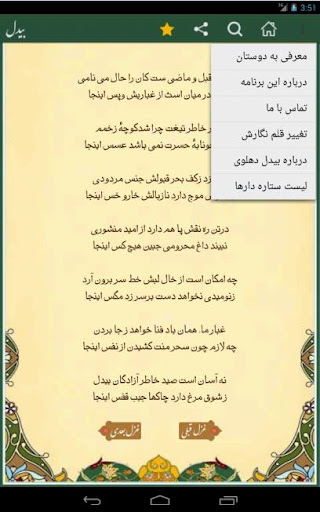 3:51
بیدل
معرفی به دوستان
درباره این برنامه
تماس با ما
تغییر قلم نگارش
درباره بیدل دهلوی
لیست ستاره دارها
قبل و ماضی ست کان را حال می نامی
در میان است از غبارش وپس اینجا
خاطر تیغت چرا شدکوچهٔ زخمم
خونابهٔ حسرت نمی باشد عسس اینجا
زکف بحر قبولش جنس مردودی
موج دارد نازبالش خارو خس اینجا
درتن ره نقش پا هم دارد از امید منشوری
نبیند داغ محرومی جبین هیچ کس اینجا
چه امکان است از خال لبش خط سر برون آرد
زنومیدی نخواهد دست برسر زد مگس اینجا
غبار ما، همان باد فنا خواهد ز جا بردن
چه لازم چون سحر منت کشیدن از نفس اینجا
نه آسان است صید خاطر آزادگان بیدل
زشوق مرغ دارد چاکها جیب قفس اینجا
غزل قبلی
غزل بعدی